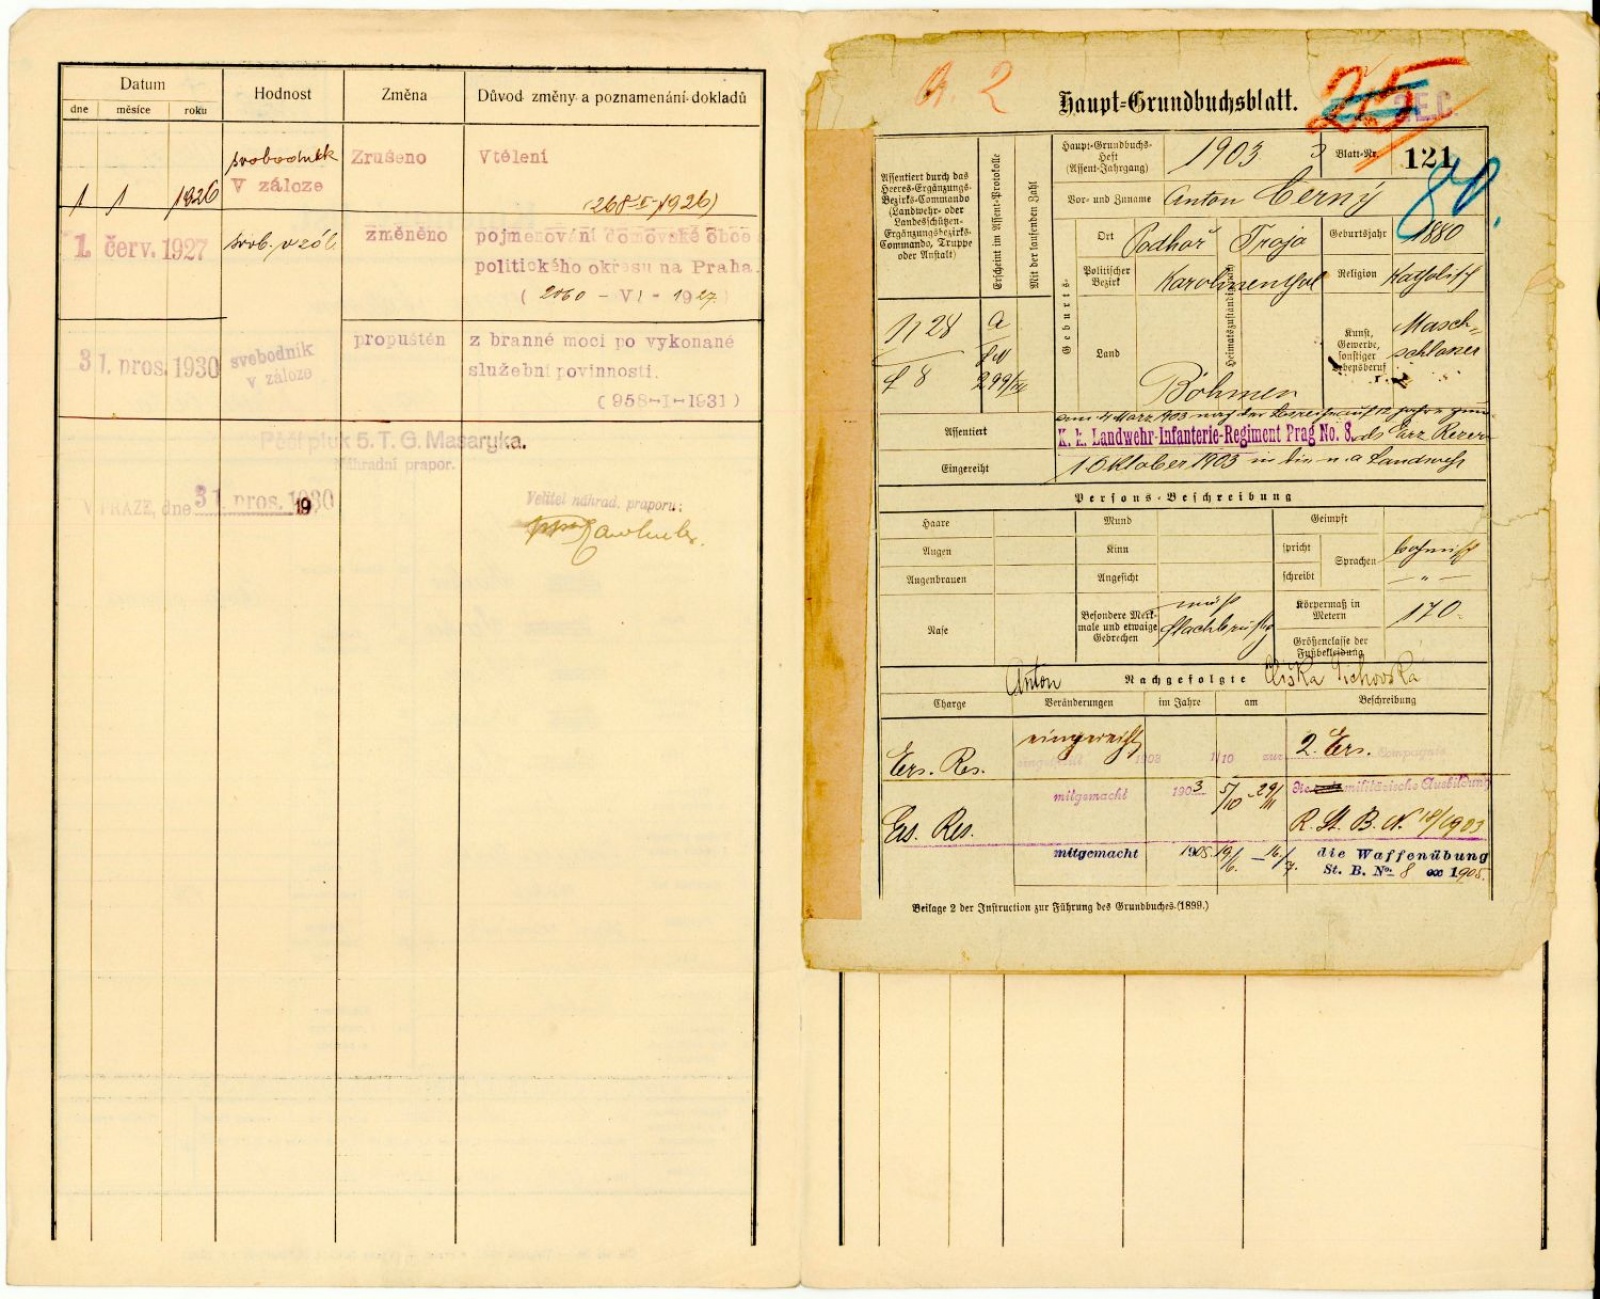 Datum
dne měsíce roku
Hodnost
Změna
Důvod změny a poznamenání dokladů
svobodník
v záloze
1 1 1926
Zrušeno
Vtělení
(268-I-1926)
1. červ. 1927
svob. v zál
změněno
pojmenování domovské obce
politického okresu na Praha.
( 2060 - VI - 1927 )
31. pros. 1930
svobodník
v záloze
propuštěn
z branné moci po vykonané
služební povinnosti.
( 958-I-1931 )
Pěší pluk 5. T. G. Masaryka.
Náhradní prapor.
V PRAZE, dne 31. pros. 1930
19
Velitel náhrad. praporu:
2
25
Haupt-Grundbuchsblatt.
Assentiert durch das
Heeres-Ergänzungs-
Bezirks-Commando
(Landwehr- oder
Landesschützen-
Ergänzungsbezirks-
Commando, Truppe
oder Anstalt)
Erscheint im Assent-Protokolle
Mit der laufenden Zahl
Haupt-Grundbuchs-
Heft
(Assent-Jahrgang)
1903
Blatt-Nr.
121
80.
Vor- und Zuname
Anton Černý
Geburts-
Heimatszuständigkeit
Ort
Podhoř Troja
Geburtsjahr
1880
Politischer
Bezirk
Karolinenthal
Religion
Katholisch
Land
Böhmen
Kunst,
Gewerbe,
sonstiger
Lebensberuf
Masch-
schlosser
N 28
a
299/
Assentiert
K. k. Landwehr-Infanterie-Regiment Prag No. 8.
Eingereiht
1 Oktober 1903 in die n. a Landwehr
Persons-Beschreibung
Haare
Mund
Geimpft
Augen
Kinn
spricht
Sprachen
böhmisch
Augenbrauen
Angesicht
schreibt
— " —
Nase
Besondere Merk-
male und etwaige
Gebrechen
flachbrüstig
Körpermaß in
Metern
170
Größenclasse der
Fußbekleidung
Anton
Nachgefolgte
Charge
Veränderungen
im Jahre
am
Beschreibung
Ers. Res.
eingereiht
eingetheilt 1903 1/10 zur
2. Ers. Compagnie
mitgemacht 1903 5/10 - 29/11
militärische Ausbildung
Ers. Res.
R. St. B. N. 18/1903
mitgemacht 1905 19/6. — 16/7.
die Waffenübung
St. B. No. 8 ex 1905.
Beilage 2 der Instruction zur Führung des Grundbuches (1899.)